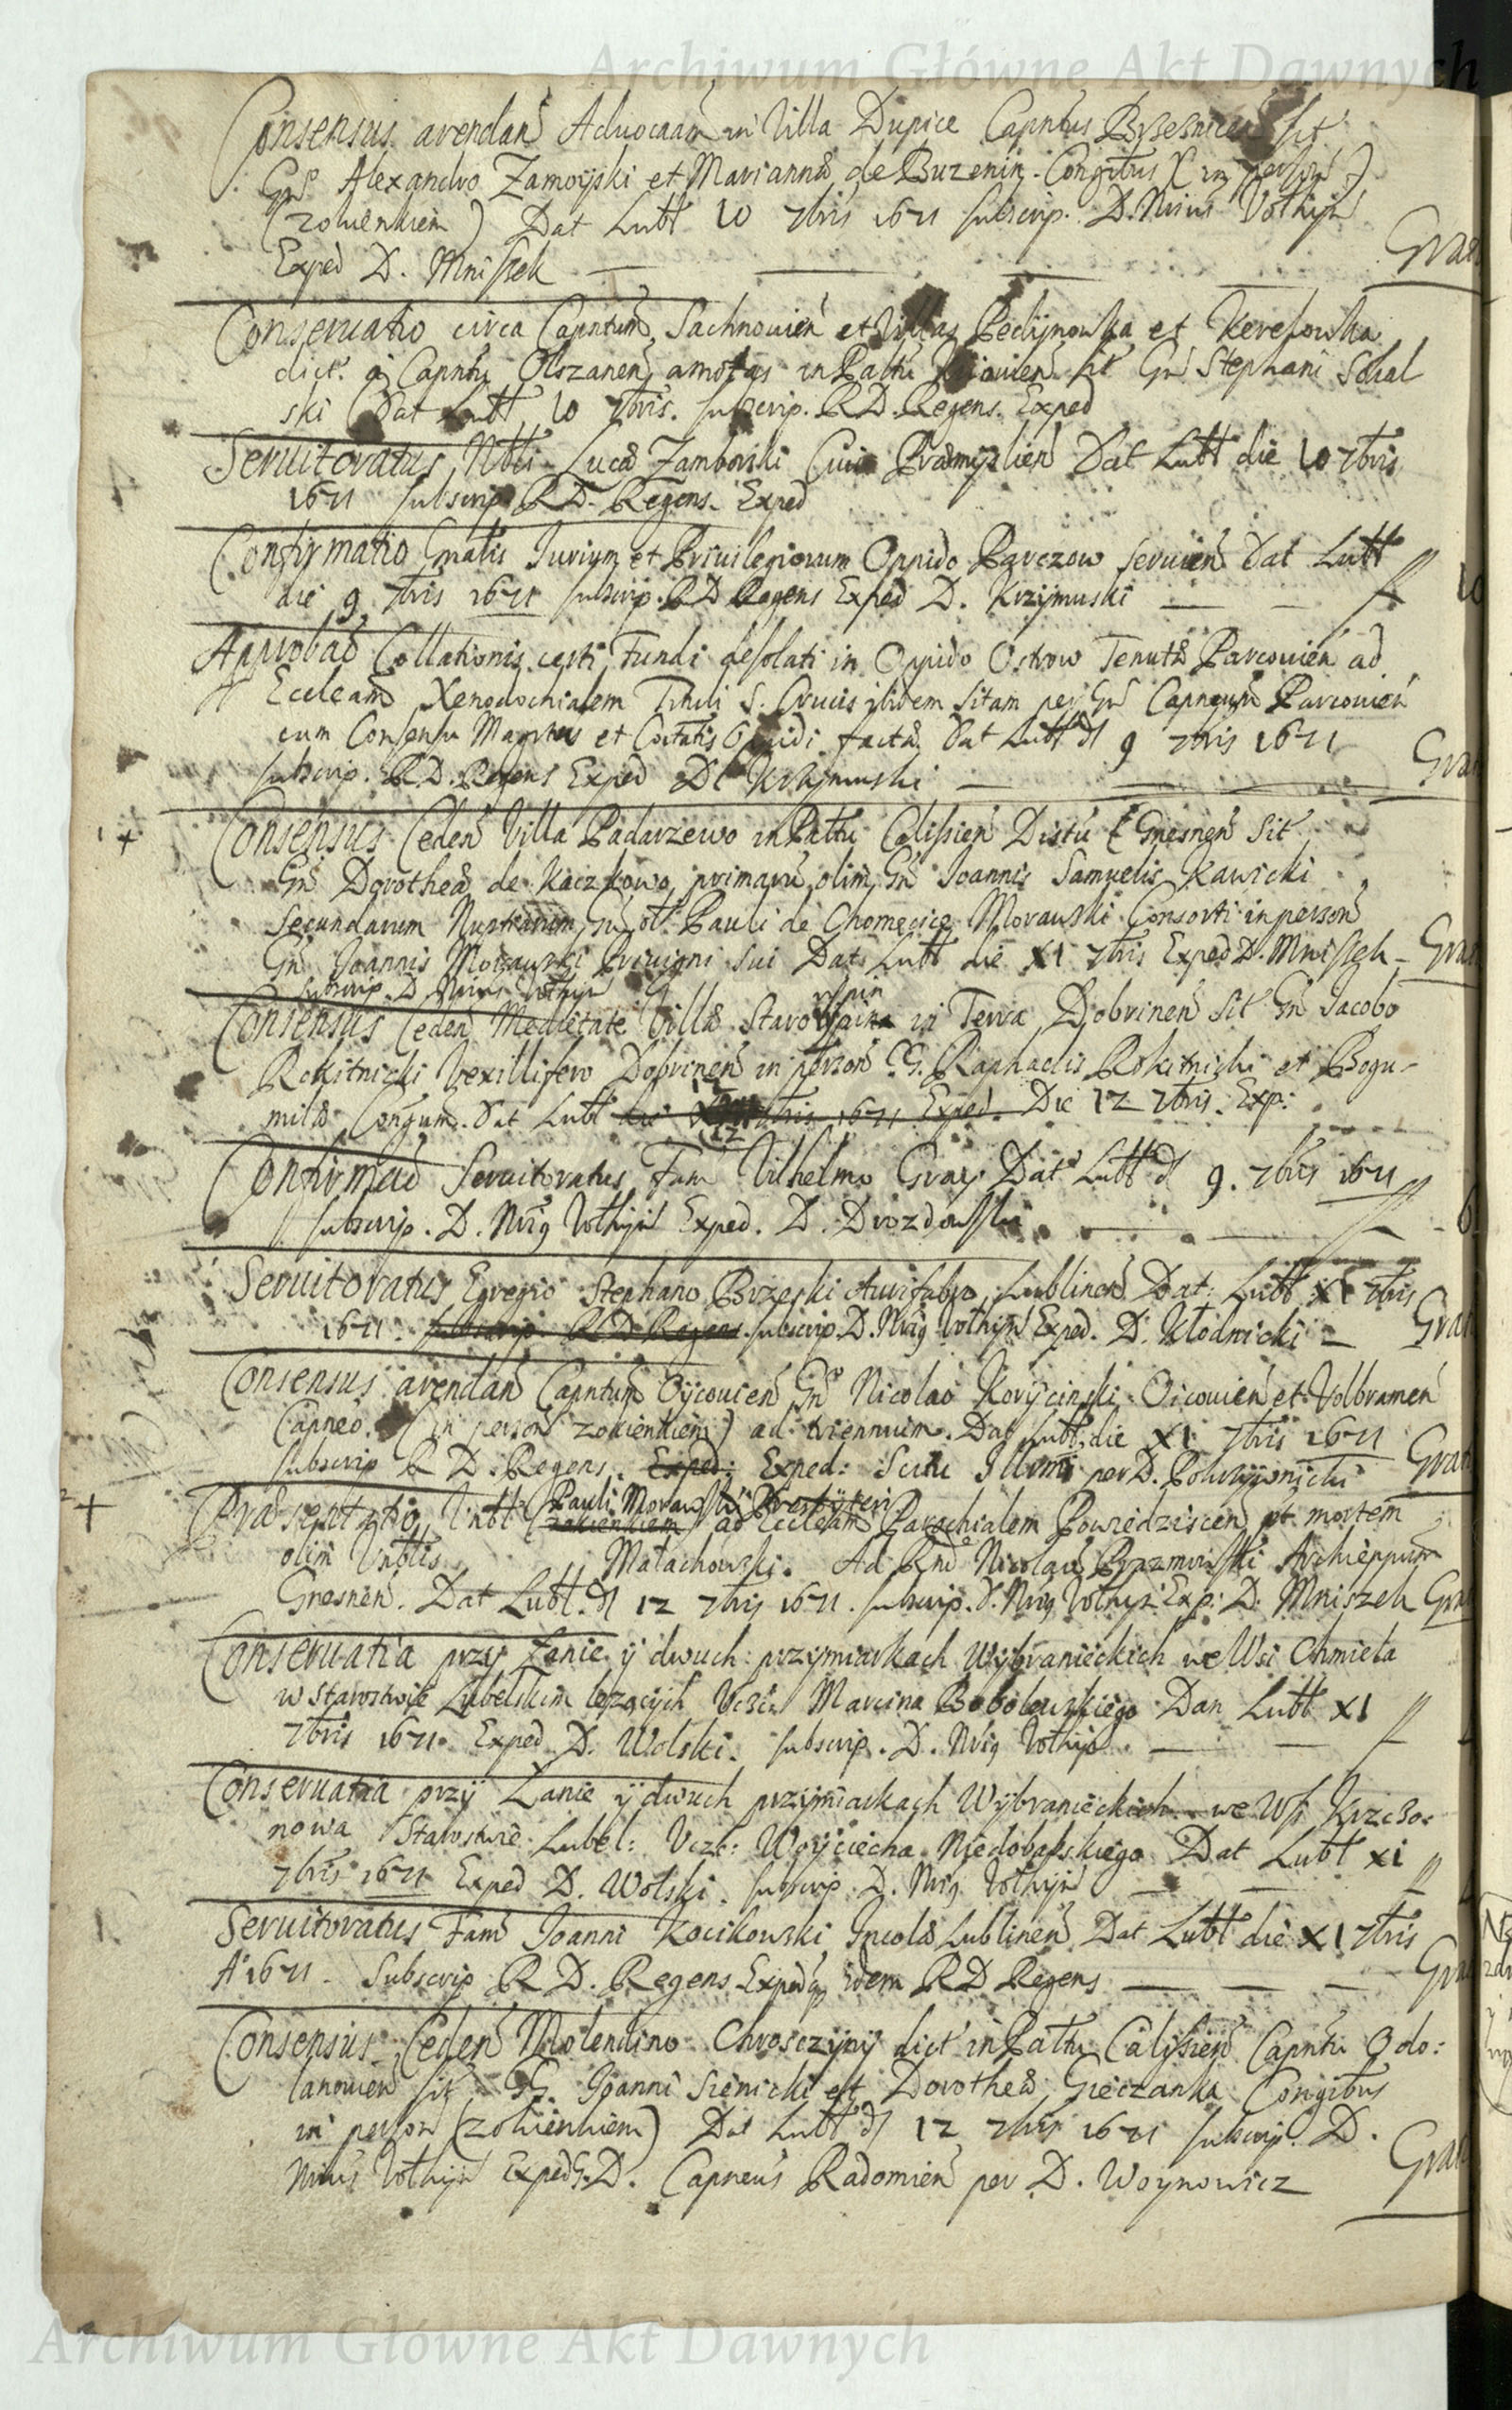 Archiwum Główne Akt Dawnych
Consensus arendań Aduocaam in Villa Dupice Capntus Brzesnicen sit
Gns Alexandro Zamoyski et Marianna de Buzenin Congibus (in person
(zokienkiem) Dat Lubl 10 7bris 1671 subscrip. D. Nrius Volhyn
Exped D. Mnissek Grat
Conseruatio circa Capntum Sachnouien et Villas Pedynowka et Kerekowka
dict. a Capntu Olszanen amotas in Paltu Kiiouien sit Gn Stephani Schal
ski Dat Lubl 10 7bris. subscrip. RD. Regens. Exped
Seruitoratus Nbli Luca Zamborski Ciui Præmyslien Dat Lubl die 10 7bris
1671 subscrip RD. Regens. Exped
Confirmatio Gnalis Jurium et Priuilegiorum Oppido Parczow seruien Dat Lubl
die 9 7bris 1671 subscrip. RD Regens Exped D. Krzymuski
Approbao Collationis certi Fundi desolati in Oppido Ostrow Tenutæ Parcouien ad
Eccleam Xenodochialem Tituli S. Crucis ibidem sitam per Gn Capneum Parcouien
cum Consensu Magrtus et Coitatis Oppidi facta Dat Lubl d 9 7bris 1671
subscrip. RD. Regens Exped D. Krzymuski Grat
+ Consensus Ceden Villa Padarzewo in Paltu Calissien Distu Gnesnen Sit
Gn Dorotheæ de Kaczkowo primaru olim Gn Joannis Samuelis Kawicki
Secundarum Nuptiarum Gn ol. Pauli de Chomęcice Morawski Consorti in person
Gn Joannis Morawski Priuigni sui Dat Lubl die XI 7bris Exped D. Mnissek Grat
subscrip. D. Nrius Volhyn
Consensus Ceden Medietate Villæ Staro in Terra Dobrinen Sit Gn Jacobo
Rokitnicki Vexillifero Dobrinen in person GG. Raphaelis Rokitnicki et Bogu-
milæ Congum. Dat Lubl 1671 Exped. Die 12 7bris. Exp:
12
Confirmao Seruitoratus Fam Vilhelmo Gray Dat Lubl d 9. 7bris 1671
subscrip. D. Nrig Volhyn Exped. D. Drozdowski
Seruitoratus Egregio Stephano Brzeski Aurifabro Lublinen Dat: Lubl XI 7bris
1671. subscrip. RD Regens. subscrip. D. Nrig Volhyn Exped. D. Kłodnicki Grat
Consensus arendan Capntum Oycouien Gn Nicolao Korycinski Oicouien et Volbramen
Capneo. (in person zokienkiem) ad triennium. Dat Lubl die XI 7bris 1671
subscrip RD. Regens. Exped: Exped: Scitu Illrmi per D. Pokrzywnicki Grat
Pauli Morawski Presbyteri
+ Præsentatio Vnbl (zokienkiem) ad Eccleam Parochialem Powiedziscen pt mortem
olim Vnblis Małachowski. Ad Rnd Nicolau Prazmowski Archieppum
Gnesnen. Dat Lubl. d 12 7bris 1671. subscrip. d. Nrig Volhyn. Exp: D. Mniszek Grat
Conseruatia przy Łanie y dwuch przymiarkach Wybranieckich we Wsi Chmiela
w Starostwie Lubelskim lezących Vczc: Marcina Bobolewskiego Dan Lubl XI
7bris 1671. Exped D. Wolski. subscrip. D. Nrig Volhyn
Conseruatia przy Łanie y dwuch przymiarkach Wybranieckich we Wsi Krzczo:
nowa Starostwie Lubel: Vczc: Woyciecha Niedobalskiego Dat Lubl XI
7bris 1671 Exped D. Wolski. subscrip D. Nrig Volhyn
Seruitoratus Fam Joanni Kocikowski Incolæ Lublinen Dat Lubl die XI 7bris
Ao 1671. Subscrip RD. Regens Expedq idem RD Regens Grat
Consensus Ceden Molendino Chrosczyny dict in Paltu Calissien Capntu Odo:
lanouien sit GG. Joanni Sienicki et Dorotheæ Gieczanka Congibus
in person (zokienkiem) Dat Lubl d 12 7bris 1671 subscrip. D.
Nrius Volhyn Exped G. D. Capneus Radomien per D. Woynowicz Grat
Archiwum Główne Akt Dawnych